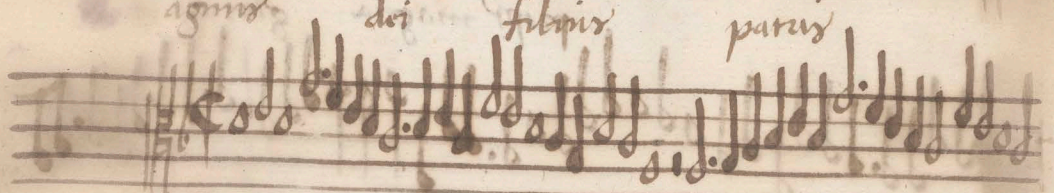 agnus dei filius patris